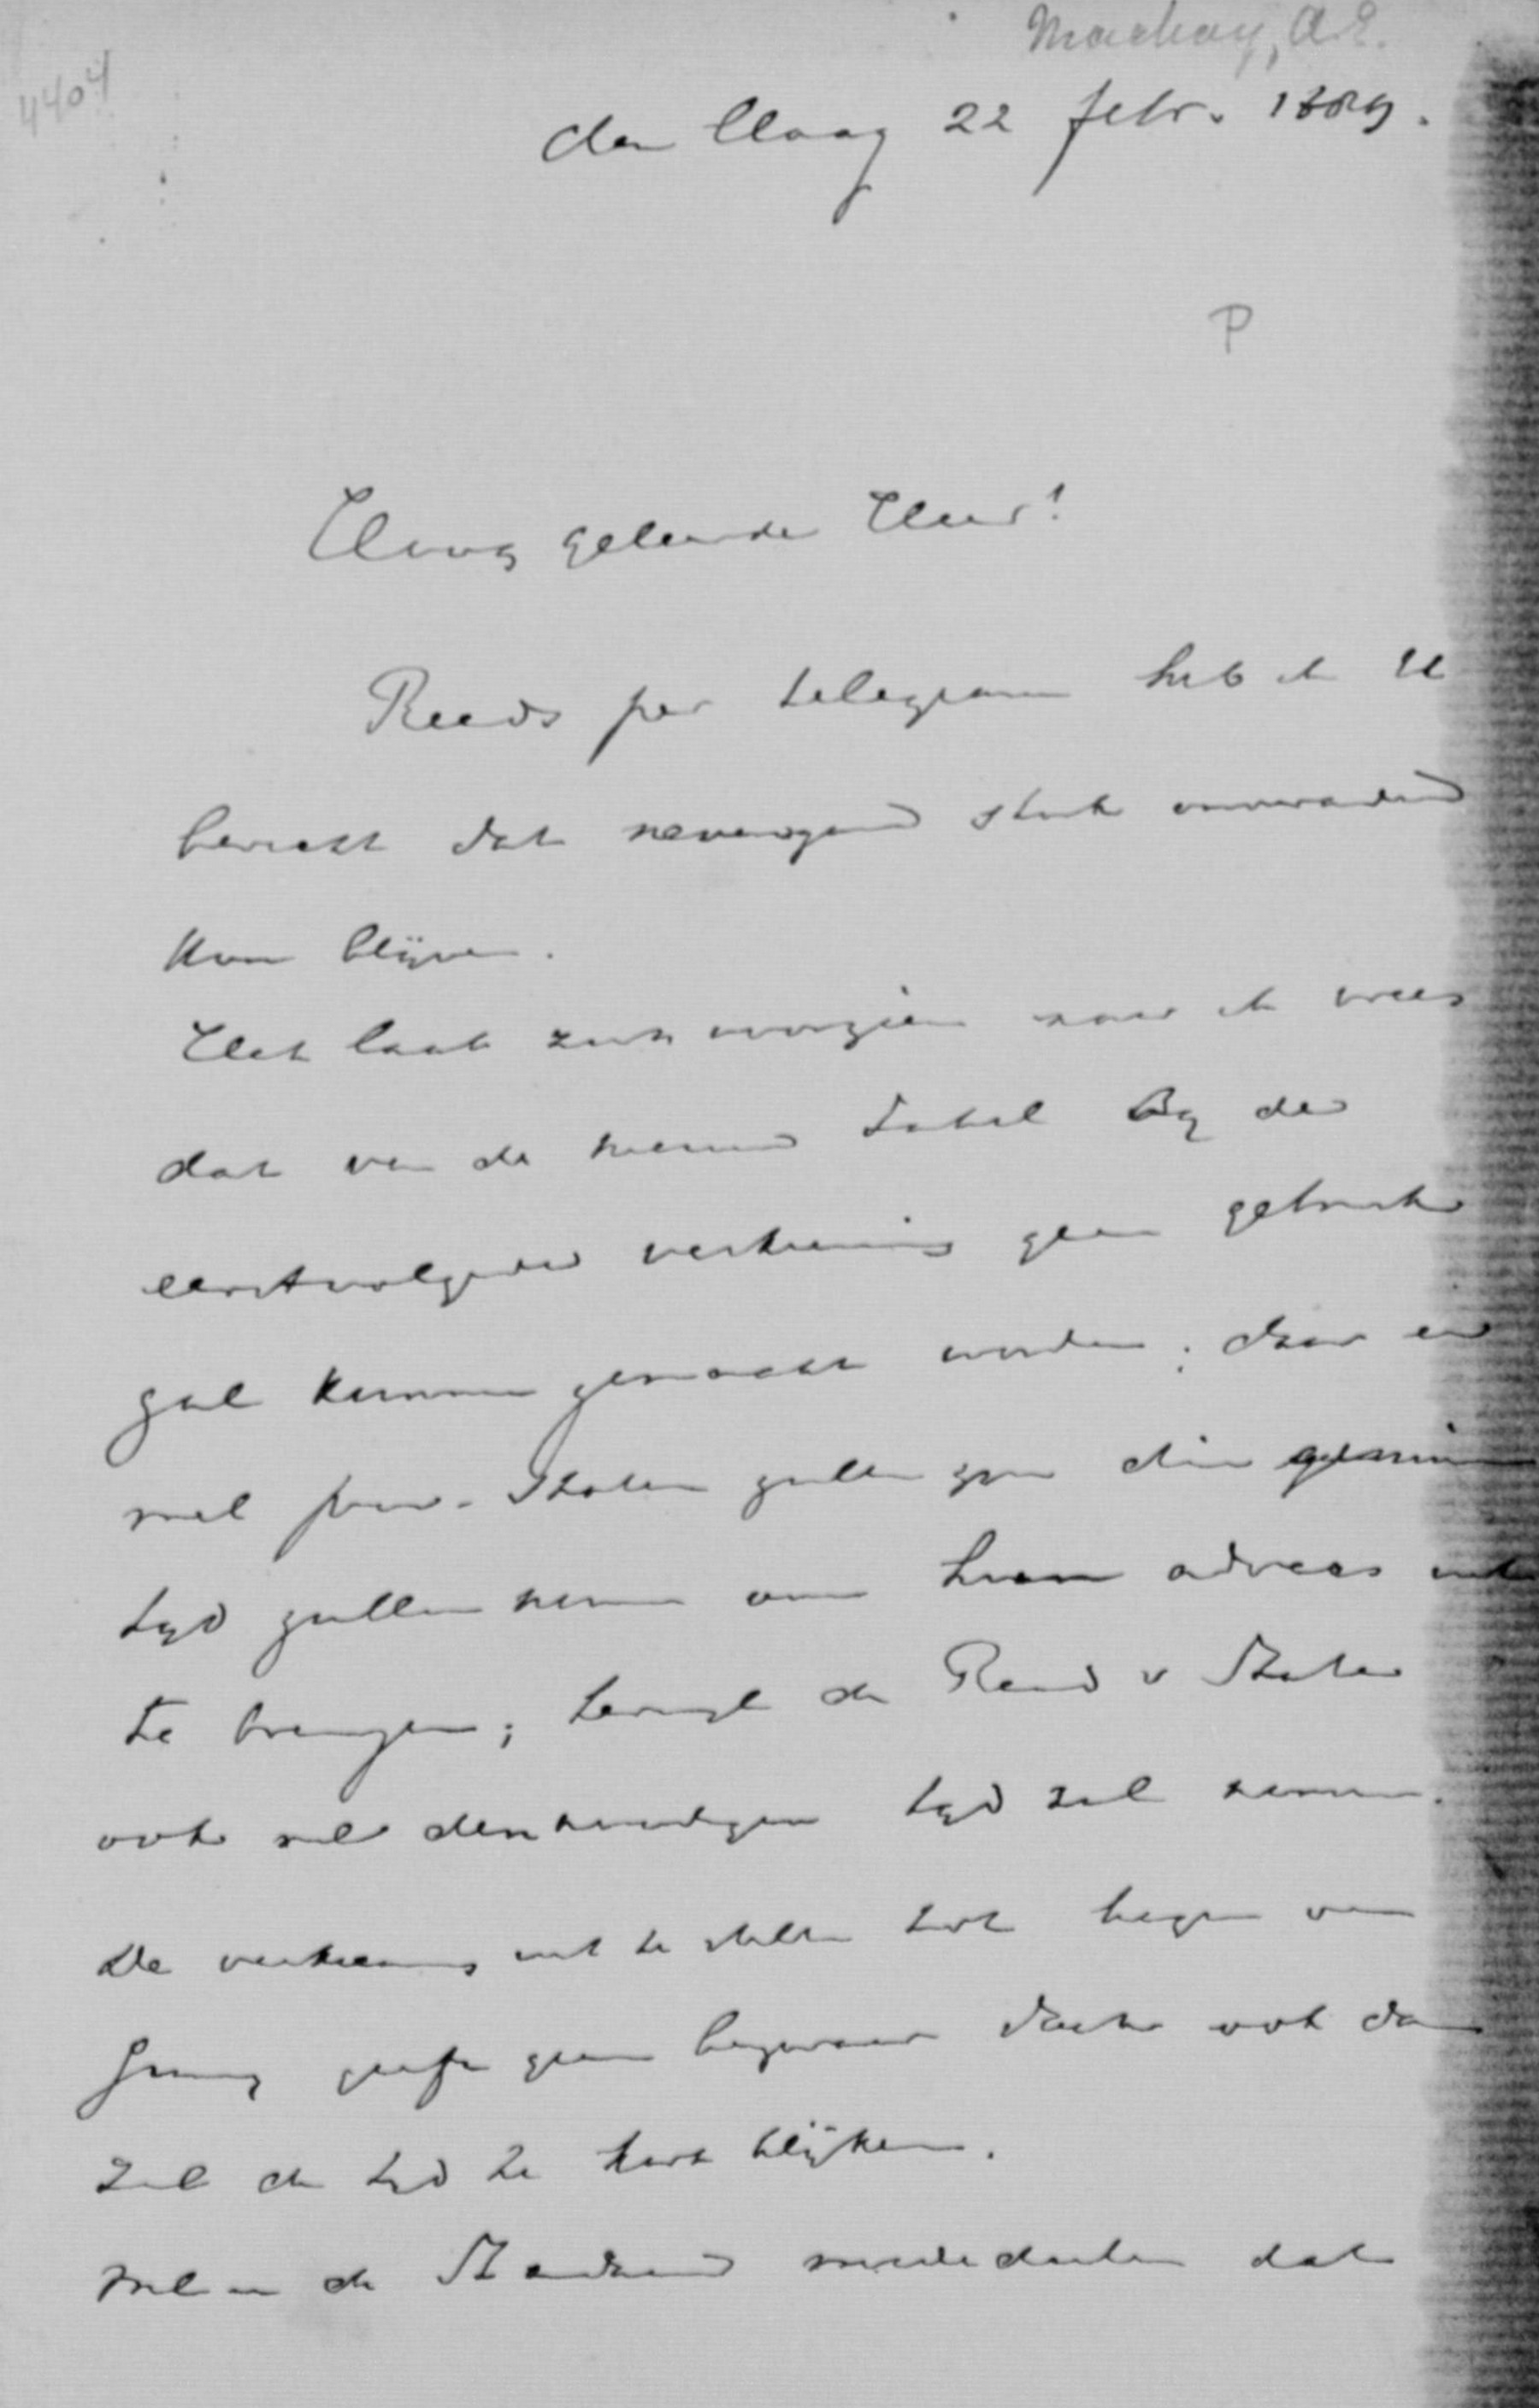 Mackay, A.E.
4404
den Haag 22 febr. 1889.
P
Hoog geleerde Heer!
Reeds per telegram heb ik U
bericht dat nevensgaand stuk onveranderd
kon blijven.
Het laat zich voorzien naar ik vrees
dat van de nieuwe tabel by de
eerstvolgende verkiezing geen gebruik
zal kunnen gemaakt worden; daar er
wel prov. Staten zullen zyn die
tyd zullen nemen om hun advies uit
te brengen; terwyl de Raad v State
ook wel den noodigen tyd zal nemen.
De verkiezing uit te stellen tot begin van
Juny geeft geen bezwaar doch ook dan
zal de tyd te kort blijken.
Wil in de Standaard mededeelen dat